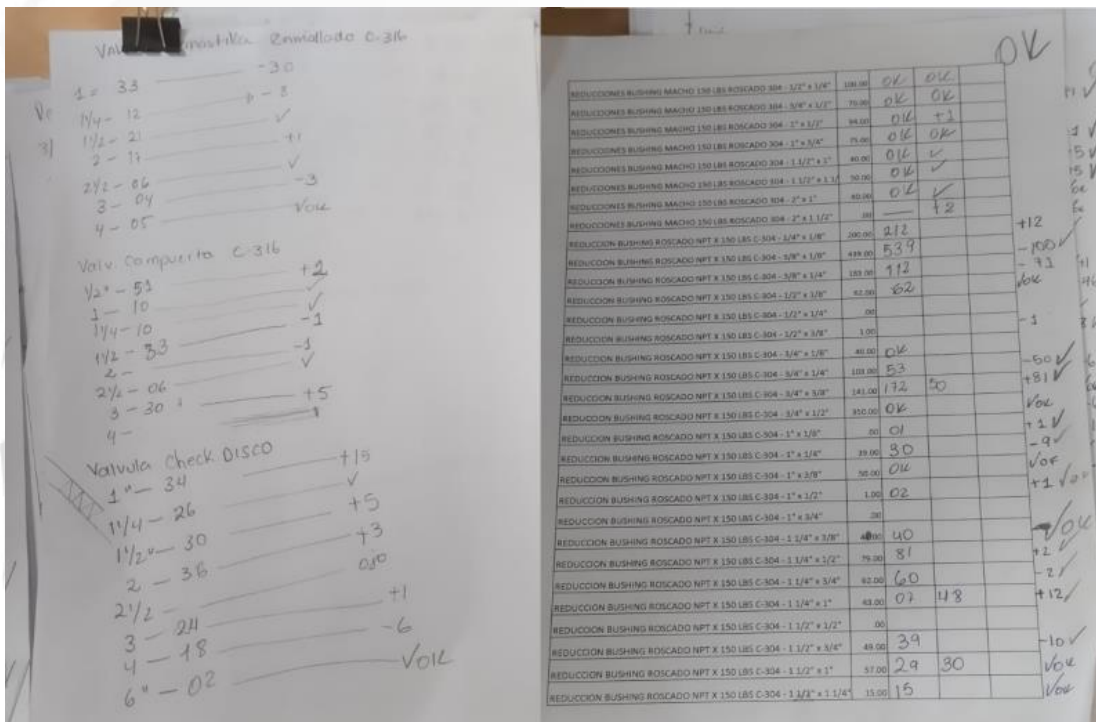 Enmallado C-316
1" 33 -30
1 1/4 - 12 - 8
1 1/2 - 21 ✓
2 - 17 +1
2 1/2 - 06 ✓
3 - 04 -3
4 - 05 ✓OK
Valv. Compuerta C-316
1/2" - 51 +2
1 - 10 ✓
1 1/4 - 10 ✓
1 1/2 - 33 -1
2 - -1
2 1/2 - 06 ✓
3 - 30 +5
4 -
Valvula Check DISCO
1" - 34 +15
1 1/4 - 26 ✓
1 1/2" - 30 +5
2 - 36 +3
2 1/2 - ojo
3 - 24 +1
4 - 18 -6
6" - 02 ✓OK
OK
REDUCCIONES BUSHING MACHO 150 LBS ROSCADO 304 - 1/2" x 1/4" 100.00 OK OK
REDUCCIONES BUSHING MACHO 150 LBS ROSCADO 304 - 3/4" x 1/2" 70.00 OK OK
REDUCCIONES BUSHING MACHO 150 LBS ROSCADO 304 - 1" x 1/2" 94.00 OK +1
REDUCCIONES BUSHING MACHO 150 LBS ROSCADO 304 - 1" x 3/4" 75.00 OK OK
REDUCCIONES BUSHING MACHO 150 LBS ROSCADO 304 - 1 1/2" x 1" 40.00 OK ✓
REDUCCIONES BUSHING MACHO 150 LBS ROSCADO 304 - 1 1/2" x 1 1/ 50.00 OK ✓
REDUCCIONES BUSHING MACHO 150 LBS ROSCADO 304 - 2" x 1" 40.00 OK ✓
REDUCCIONES BUSHING MACHO 150 LBS ROSCADO 304 - 2" x 1 1/2" .00 — +2
REDUCCION BUSHING ROSCADO NPT X 150 LBS C-304 - 1/4" x 1/8" 200.00 212 +12
REDUCCION BUSHING ROSCADO NPT X 150 LBS C-304 - 3/8" x 1/8" 539 -100 ✓
REDUCCION BUSHING ROSCADO NPT X 150 LBS C-304 - 3/8" x 1/4" 183.00 112 - 71
REDUCCION BUSHING ROSCADO NPT X 150 LBS C-304 - 1/2" x 1/8" 62.00 62 ✓OK
REDUCCION BUSHING ROSCADO NPT X 150 LBS C-304 - 1/2" x 1/4" .00
REDUCCION BUSHING ROSCADO NPT X 150 LBS C-304 - 1/2" x 3/8" 1.00 -1
REDUCCION BUSHING ROSCADO NPT X 150 LBS C-304 - 3/4" x 1/8" 40.00 OK
REDUCCION BUSHING ROSCADO NPT X 150 LBS C-304 - 3/4" x 1/4" 103.00 53 -50 ✓
REDUCCION BUSHING ROSCADO NPT X 150 LBS C-304 - 3/4" x 3/8" 141.00 172 50 +81 ✓
REDUCCION BUSHING ROSCADO NPT X 150 LBS C-304 - 3/4" x 1/2" 310.00 OK ✓OK
REDUCCION BUSHING ROSCADO NPT X 150 LBS C-304 - 1" x 1/8" .00 01 +1 ✓
REDUCCION BUSHING ROSCADO NPT X 150 LBS C-304 - 1" x 1/4" 39.00 30 -9 ✓
REDUCCION BUSHING ROSCADO NPT X 150 LBS C-304 - 1" x 3/8" 50.00 OK ✓OK
REDUCCION BUSHING ROSCADO NPT X 150 LBS C-304 - 1" x 1/2" 1.00 02 +1 ✓
REDUCCION BUSHING ROSCADO NPT X 150 LBS C-304 - 1" x 3/4" .00
REDUCCION BUSHING ROSCADO NPT X 150 LBS C-304 - 1 1/4" x 3/8" 40 ✓OK
REDUCCION BUSHING ROSCADO NPT X 150 LBS C-304 - 1 1/4" x 1/2" 79.00 81 +2 ✓
REDUCCION BUSHING ROSCADO NPT X 150 LBS C-304 - 1 1/4" x 3/4" 62.00 60 -2 ✓
REDUCCION BUSHING ROSCADO NPT X 150 LBS C-304 - 1 1/4" x 1" 43.00 07 48 +12 ✓
REDUCCION BUSHING ROSCADO NPT X 150 LBS C-304 - 1 1/2" x 1/2" .00
REDUCCION BUSHING ROSCADO NPT X 150 LBS C-304 - 1 1/2" x 3/4" 49.00 39 -10 ✓
REDUCCION BUSHING ROSCADO NPT X 150 LBS C-304 - 1 1/2" x 1" 57.00 29 30 ✓OK
REDUCCION BUSHING ROSCADO NPT X 150 LBS C-304 - 1 1/2" x 1 1/4" 15.00 15 ✓OK